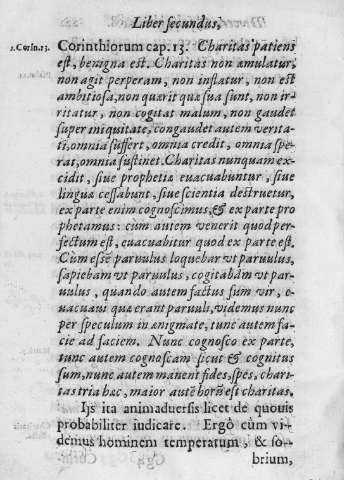 Liber secundus,
1.Corin.13. Corinthiorum cap. 13. Charitas patiens
est, benigna est. Charitas non æmulatur,
non agit perperam, non inflatur, non est
ambitiosa, non quærit quæ sua sunt, non ir-
ritatur, non cogitat malum, non gaudet
super iniquitate, congaudet autem verita-
ti, omnia suffert, omnia credit, omnia spe-
rat, omnia sustinet. Charitas nunquam ex-
cidit, siue prophetiæ euacuabuntur, siue
linguæ cessabunt, siue scientia destruetur,
ex parte enim cognoscimus, & ex parte pro
phetamus: cùm autem venerit quod per-
fectum est, euacuabitur quod ex parte est.
Cùm essẽ paruulus loquebar vt paruulus,
sapiebam vt paruulus, cogitabãm vt par-
uulus, quando autem factus sum vir, e-
uacuaui quæ erant paruuli, videmus nunc
per speculum in ænigmate, tunc autem fa-
cie ad faciem. Nunc cognosco ex parte,
tunc autem cognoscam sicut & cognitus
sum, nunc autem manent fides, spes, chari-
tas tria hæc, maior autẽ horũ est charitas.
Ijs ita animaduersis licet de quouis
probabiliter iudicare. Ergò cùm vi-
demus hominem temperatum, & so-
brium,